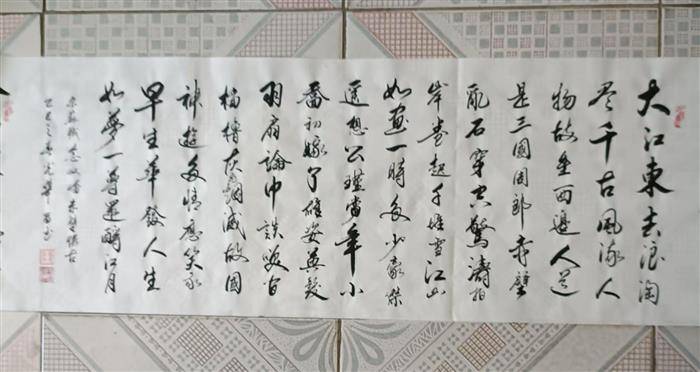 大江東去浪淘
尽千古風流人
物故壘西邊人道
是三國周郎赤壁
亂石穿空驚濤拍
岸卷起千堆雪江山
如画一時多少豪傑
遥想公瑾當年小
喬初嫁了雄姿英發
羽扇論巾談笑間
檣櫓灰烟滅故國
神遊多情應笑我
早生華發人生
如夢一尊還酹江月
宋蘇軾念奴嬌赤壁懷古
乙巳之春